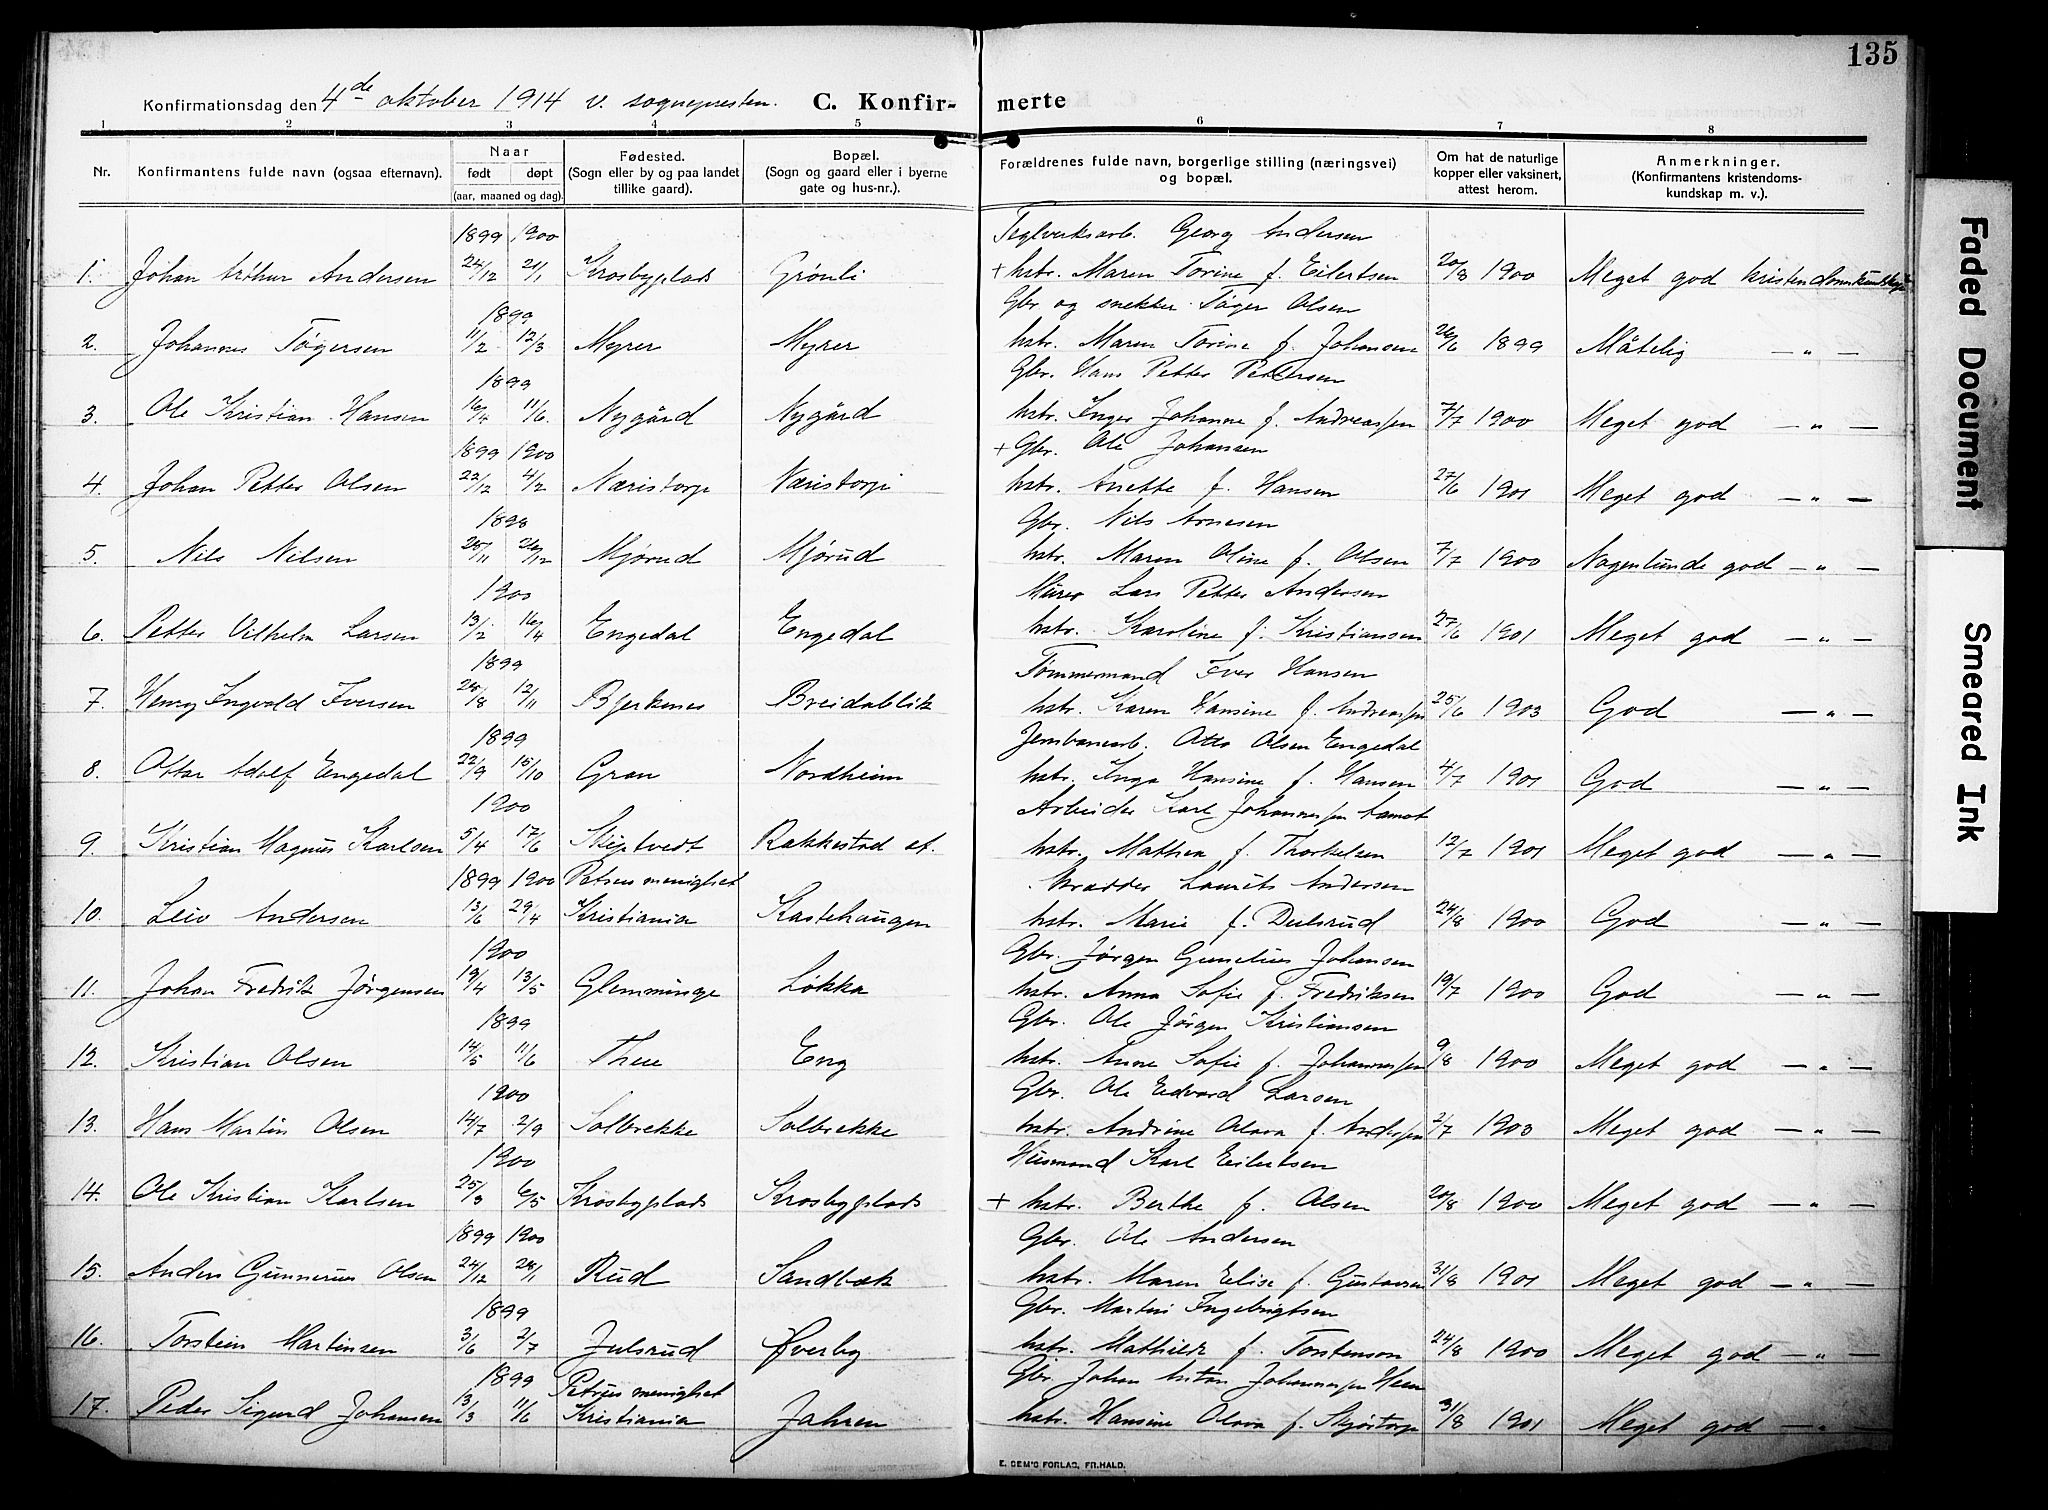 135
Konfirmationsdag den 4de oktober 1914 v. sognepresten. C. Konfir- merte
1 2 3 4 5 6 7 8
Nr. Konfirmantens fulde navn (ogsaa efternavn). Naar født døpt (aar, maaned og dag). Fødested. (Sogn eller by og paa landet tillike gaard). Bopæl. (Sogn og gaard eller i byerne gate og hus-nr.). Forældrenes fulde navn, borgerlige stilling (næringsvei) og bopæl. Om hat de naturlige kopper eller vaksinert, attest herom. Anmerkninger. (Konfirmantens kristendoms- kundskap m. v.).
1899 1900 Teglverksarb. Georg Andersen
1. Johan Arthur Andersen 24/12 21/1 Krosbyplads Grønli + hstr. Maren Torine f. Eilertsen 20/8 1900 Meget god kristendomskundskap
1899 Gbr og snekker Tøger Olsen
2. Johannes Tøgersen 11/2 12/3 Myrer Myrer hstr. Maren Torine f. Johansen 26/6 1899 Måtelig — " —
1899 Gbr. Hans Petter Pettersen
3. Ole Kristian Hansen 16/4 11/6 Nygård Nygård hstr. Inger Johanne f. Andreassen 7/7 1900 Meget god — " —
1899 1900 + Gbr. Ole Johansen
4. Johan Petter Olsen 22/12 4/2 Næristorp Næristorp hstr. Anette f. Hansen 27/6 1901 Meget god — " —
1898 Gbr. Nils Arnesen
5. Nils Nilsen 25/11 26/12 Mjørud Mjørud hstr. Maren Oline f. Olsen 7/7 1900 Nogenlunde god — " —
1900 Murer Lars Petter Andersen
6. Petter Vilhelm Larsen 13/2 16/4 Engedal Engedal hstr. Karoline f. Kristiansen 27/6 1901 Meget god — " —
1899 Tømmermand Iver Hansen
7. Henry Ingvald Iversen 28/8 12/11 Bjerkenes Breidablik hstr. Karen Hansine f. Andreassen 25/6 1903 God — " —
1899 Jernbanearb. Otto Olsen Engedal
8. Ottar Adolf Engedal 22/9 15/10 Gran Nordheim hstr. Inga Hansine f. Hansen 4/7 1901 God — " —
1900 Arbeider Karl Johannessen Aamot
9. Kristian Magnus Karlsen 5/4 17/6 Skiptvedt Rakkestad st. hstr. Mathea f. Thorkelsen 12/7 1901 Meget god — " —
1899 1900 Petrus menighet Laurits Andersen
10. Leiv Andersen 13/6 29/4 Kristiania Kastehaugen hstr. Marie f. Dulsrud 24/8 1900 God — " —
1900 Gbr. Jørgen Gunelius Johansen
11. Johan Fredrik Jørgensen 19/4 13/5 Glemminge Løkka hstr. Anna Sofie f. Fredriksen 19/7 1900 God — " —
1899 Gbr. Ole Jørgen Kristiansen
12. Kristian Olsen 14/5 11/6 Thue Eng hstr. Anne Sofie f. Johannessen 9/8 1900 Meget god — " —
1900 Gbr. Ole Edvard Larsen
13. Hans Martin Olsen 14/7 2/9 Solbrekke Solbrekke hstr. Andrine Olava f. Anderssen 2/7 1903 Meget god — " —
1900 Husmand Karl Eilertsen
14. Ole Kristian Karlsen 25/3 6/5 Krosbyplads Krosbyplads + hstr. Berthe f. Olsen 20/8 1900 Meget god — " —
1899 1900 Gbr. Ole Andersen
15. Anders Gunnerius Olsen 24/12 28/1 Rud Sandbæk hstr. Maren Elise f. Gustavsen 31/8 1901 Meget god — " —
1899 Gbr. Martin Ingebrigtsen
16. Torstein Martinsen 3/6 2/7 Julsrud Øverby hstr. Mathilde f. Torstenson 24/8 1900 Meget god — " —
1899 Petrus menighet Gbr. Johan Anton Johannessen Hem
17. Peder Sigurd Johansen 13/3 11/6 Kristiania Jahren hstr. Hansine Olava f. Skjøtorp 31/8 1901 Meget god — " —
E. SEM'S FORLAG, FR.HALD.
Faded Document
Smeared Ink